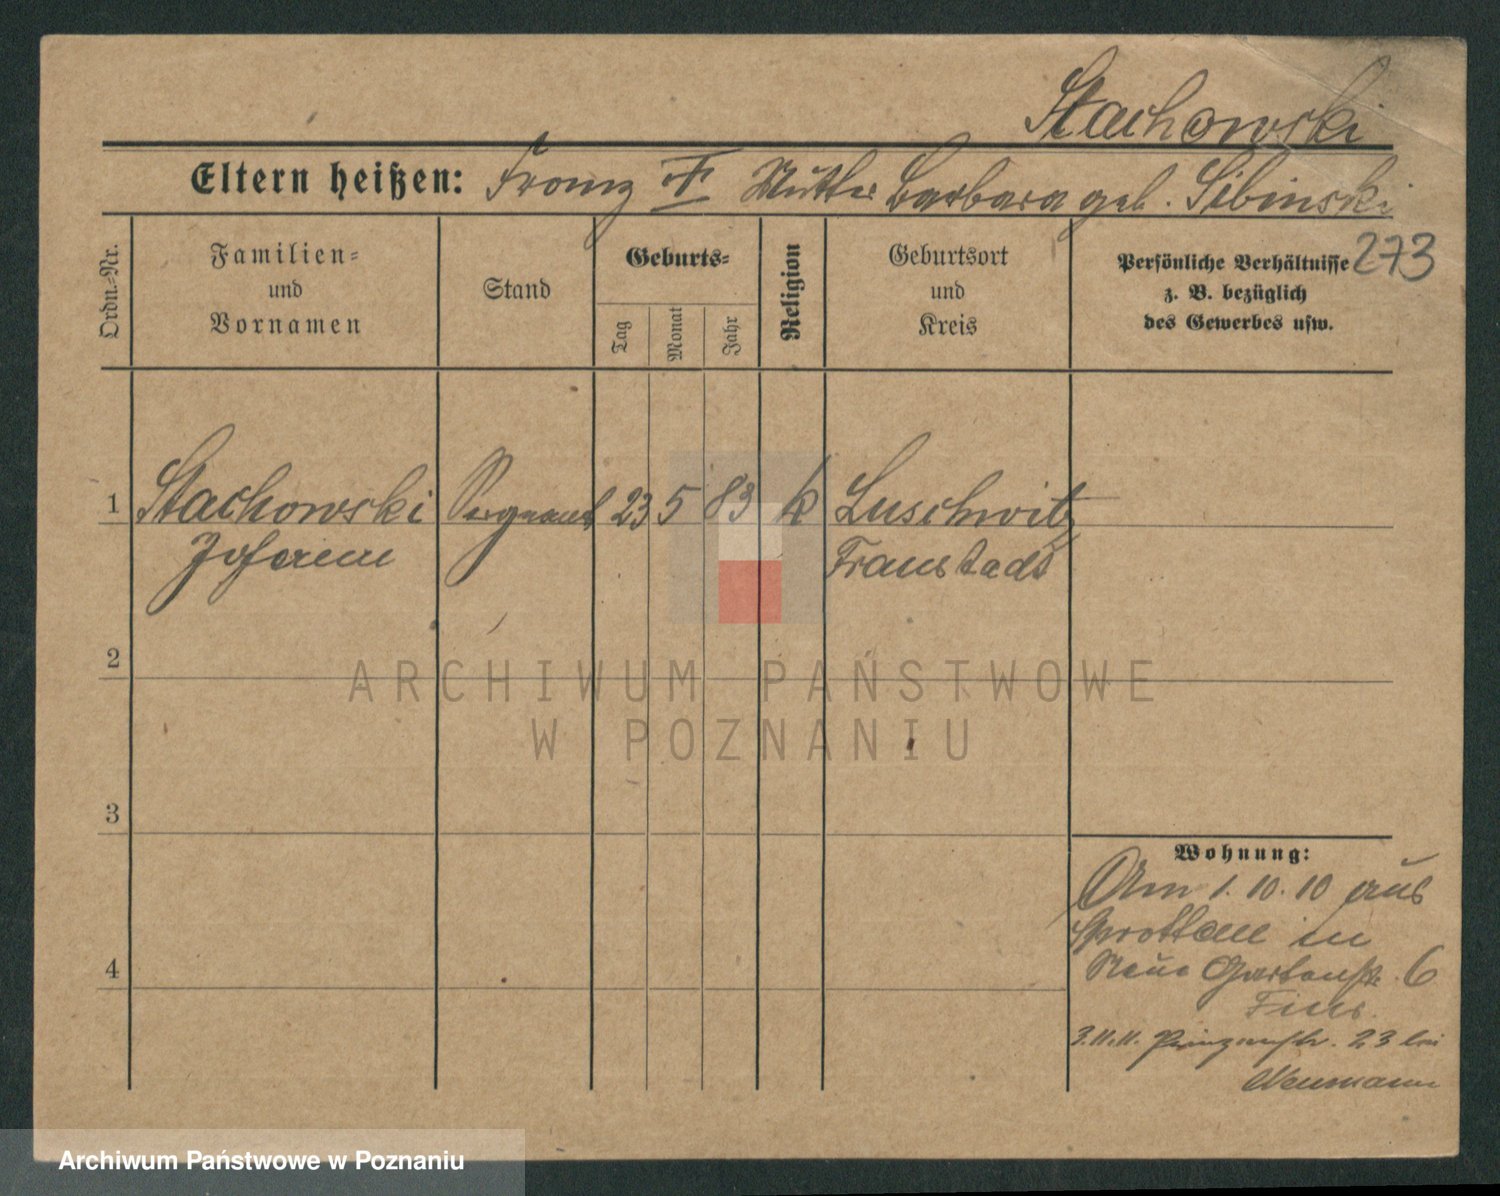 Stachowski
Eltern heißen: Franz † Mutter Barbara geb. Sibinski
273
Ordn.-Nr.
Familien-
und
Vornamen
Stand
Geburts-
Tag
Monat
Jahr
Religion
Geburtsort
und
Kreis
Persönliche Verhältnisse
z. B. bezüglich
des Gewerbes usw.
1 Stachowski Sergeant 23 5 83 k Luschwitz
Johann Fraustadt
2
3
4
Wohnung:
Am 1. 10. 10 aus
Sprottau in
Neue Gartenstr. 6
3.11.11. Prinzenstr. 23 bei
Neumann
ARCHIWUM PAŃSTWOWE
W POZNANIU
Archiwum Państwowe w Poznaniu